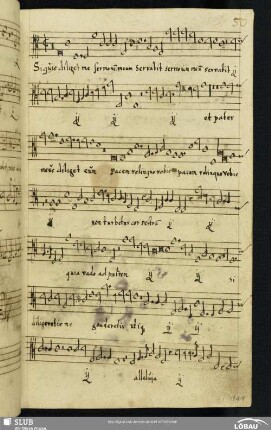 50
Si q̃s diliget me sermonem meum servabit sermonem meũ servabit ij
ij ij ij et pater
meus diliget eũ pacem relinquo vobis pacem relinquo vobis
ij non turbetur cor vestrũ ij ij
quia vado ad patrem ij ij si
diligeretis me gauderetis utiq ij ij
ij alleluja ij
SLUB
Wir führen Wissen.
LÖBAU